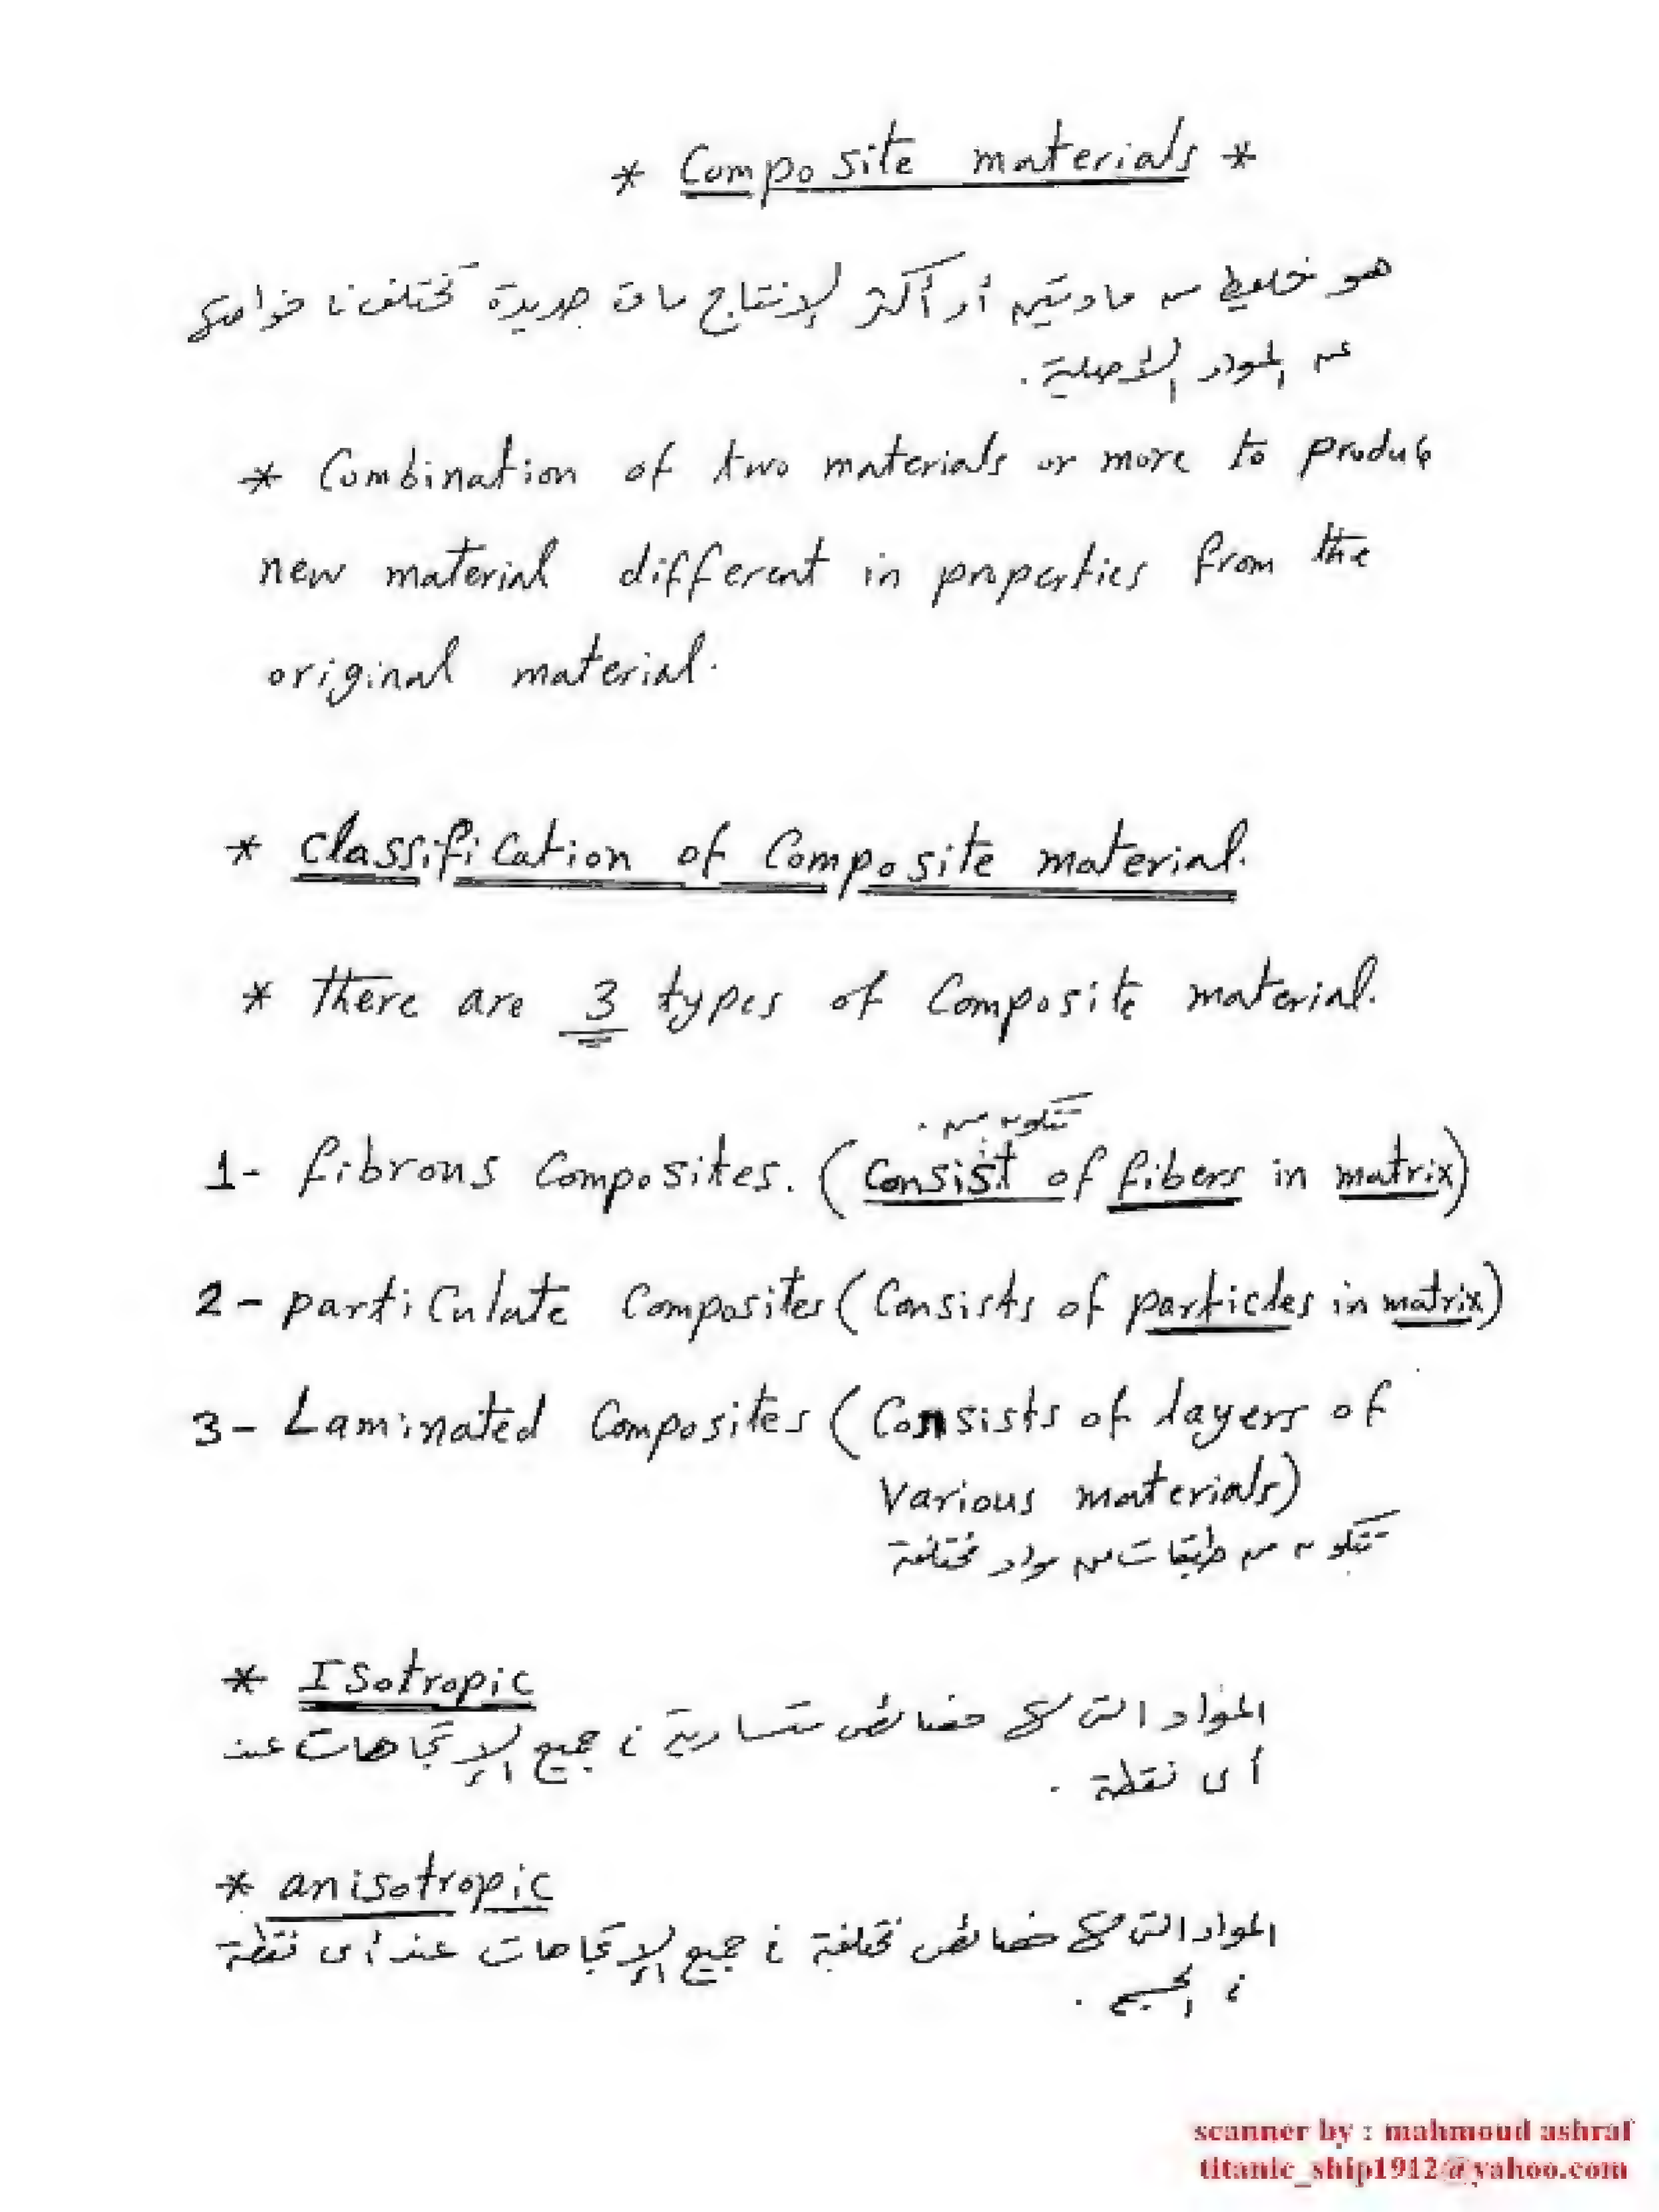 * Composite materials *
هو خليط من مادتين أو أكثر لإنتاج مادة جديدة تختلف في خواصها
عن المواد الأصلية.
* Combination of two materials or more to produce
new material different in properties from the
original material.
* Classification of Composite material.
* There are 3 types of Composite material.
تتكون من .
1- fibrous Composites. (Consist of fibers in matrix)
2- particulate Composites (Consists of particles in matrix)
3- Laminated Composites (Consists of layers of
Various materials)
تتكون من طبقات من مواد مختلفة
* Isotropic
المواد التى لها خصائص متساوية فى جميع الإتجاهات عند
أى نقطة .
* anisotropic
المواد التى لها خصائص مختلفة فى جميع الإتجاهات عند أى نقطة
فى الجسم .
scanner by : mahmoud ashraf
titanic_ship1912@yahoo.com